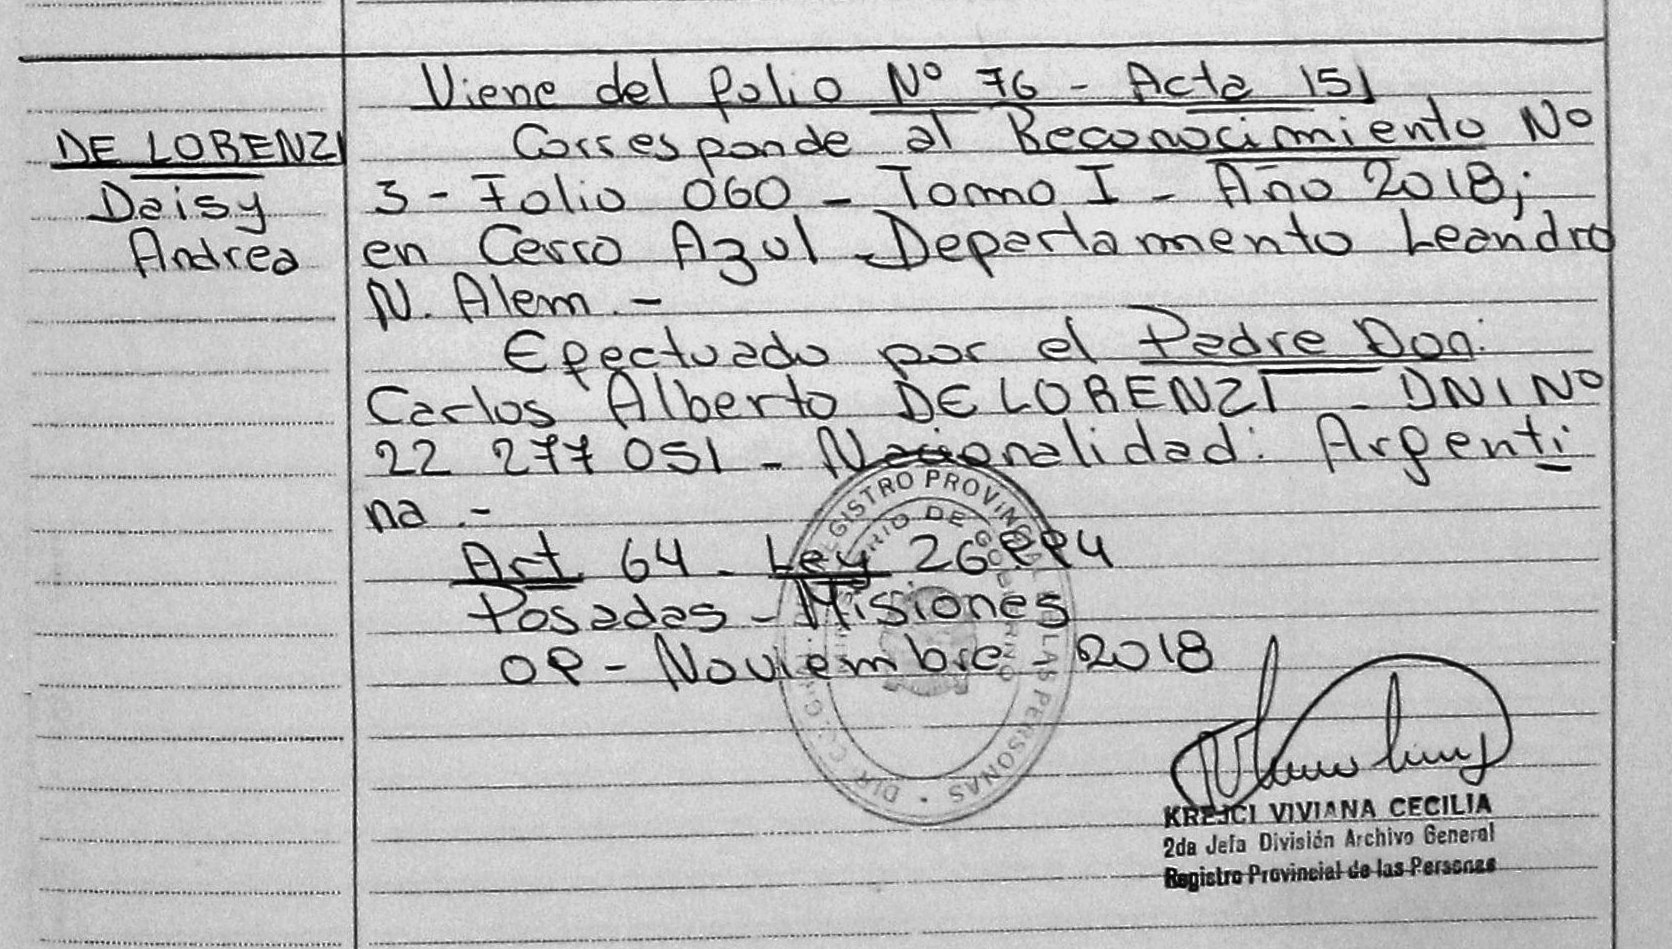 Viene del folio Nº 76 - Acta 151
DE LORENZI
Daisy
Andrea
Corresponde al Reconocimiento Nº
3 - Folio 060 - Tomo I - Año 2018;
en Cerro Azul - Departamento Leandro
N. Alem. -
Efectuado por el Padre Don:
Carlos Alberto DE LORENZI - DNI Nº
22 277 051 - Nacionalidad: Argenti
na .-
Art. 64 - Ley 26994
Posadas - Misiones
09 - Noviembre - 2018
REGISTRO PROVINCIAL DE LAS PERSONAS
DE GOBIERNO
KREJCI VIVIANA CECILIA
2da Jefa División Archivo General
Registro Provincial de las Personas